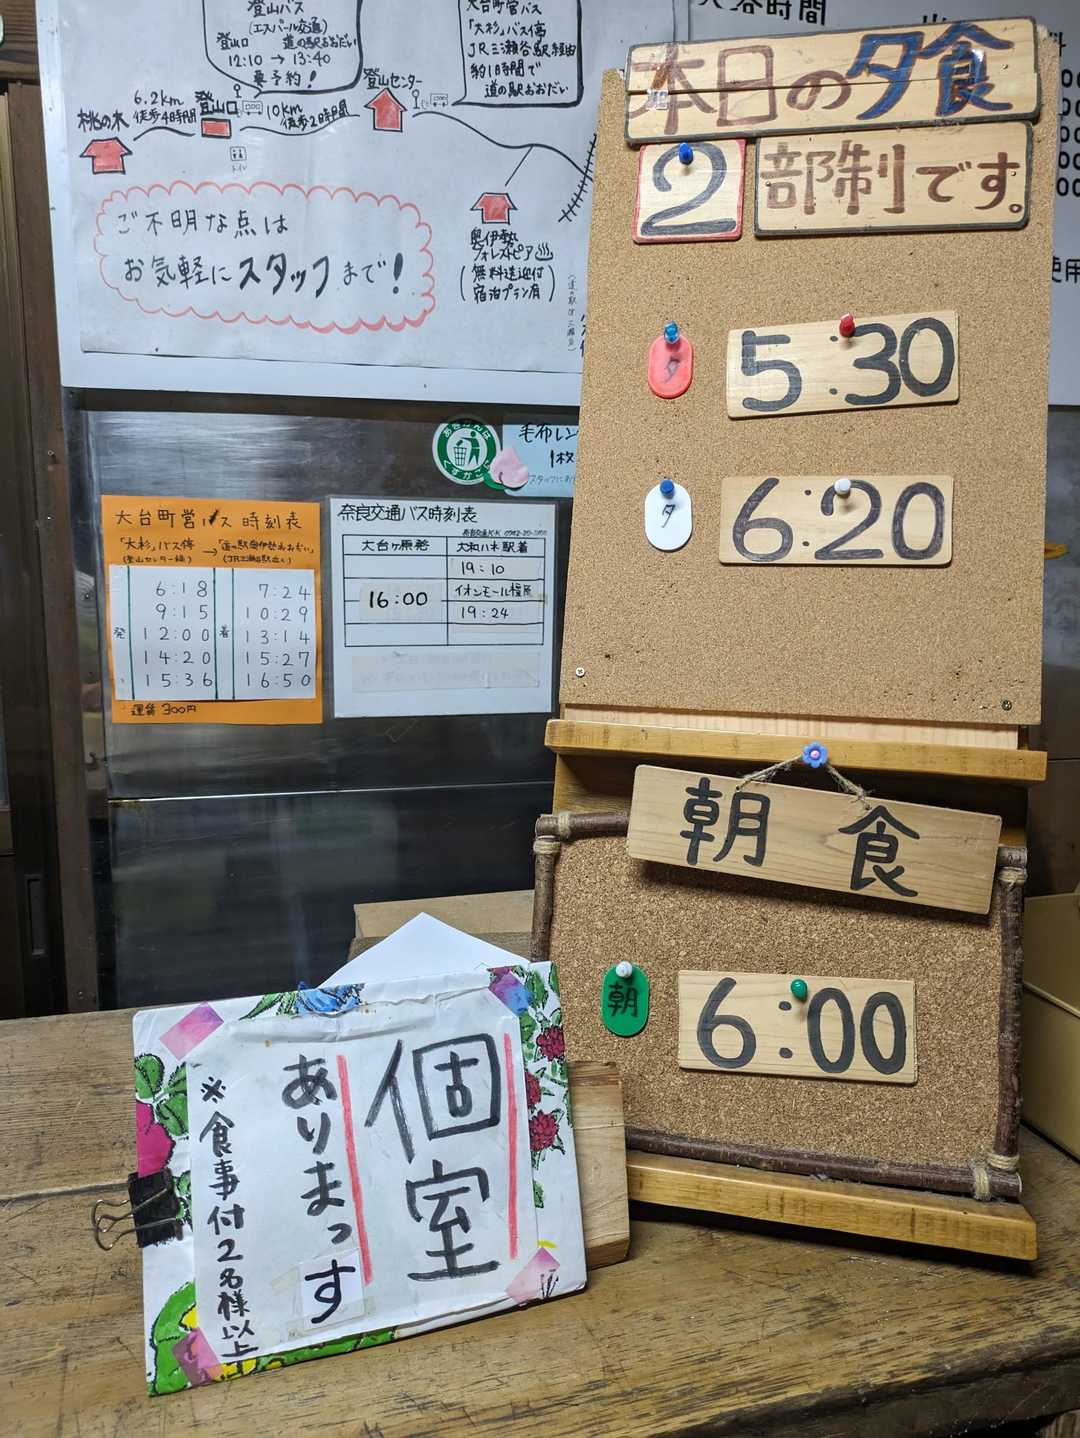 登山バス
(エスパール交通)
登山口 道の駅おおだい
12:10 → 13:40
要予約!
大台町営バス
「大杉」バス停
JR三瀬谷駅経由
約1時間で
道の駅おおだい
桃の木
6.2km
徒歩4時間
登山口
10km
徒歩2時間
登山センター
トイレ
ご不明な点は
お気軽にスタッフまで!
奥伊勢
フォレストピア
(無料送迎付
宿泊プラン有)
毛布レン
1枚
大台町営バス 時刻表
「大杉」バス停 → 「道の駅奥伊勢おおだい」
(登山センター前) (JR三瀬谷駅近く)
発 着
6:18 7:24
9:15 10:29
12:00 13:14
14:20 15:27
15:36 16:50
運賃 300円
奈良交通バス時刻表
大台ヶ原発 大和八木駅着
19:10
16:00 イオンモール橿原
19:24
本日の夕食
2 部制です。
夕 5:30
夕 6:20
朝食
朝 6:00
個室
ありまっす
※食事付2名様以上